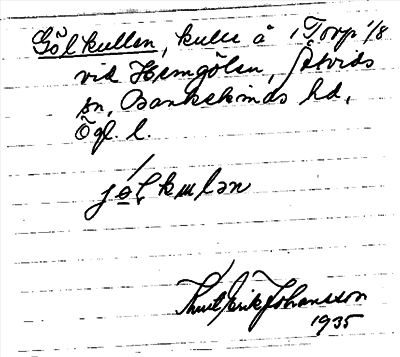 Gölkullen, kulle å 1 Torp 1/8
vid Hemgölen, Åtvids
sn, Bankekinds hd,
Ögl. l.
jö́lkulən
Knut Erik Johansson
1935